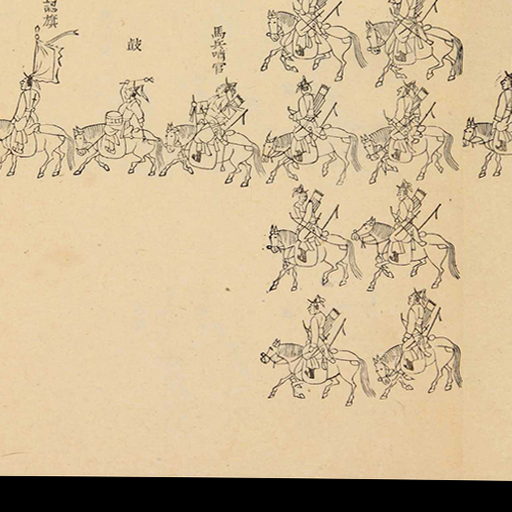 馬兵哨官
鼓
招旗